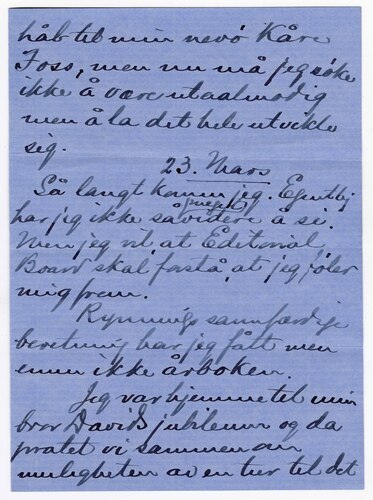 håb til min nevø Kåre
Foss, men nu må jeg søke
ikke å være utaalmodig
men å la det hele utvikle
sig.
23. Mars
Så langt kom jeg. Egentlig
har jeg ikke så meget videre å si.
Men jeg vil, at Editorial
Board skal forstå, at jeg føler
mig frem.
Rynnings sannfærdige
beretning har jeg fått men
ennu ikke årboken.
Jeg var hjemme til min
bror Davids jubileum og da
pratet vi sammen om
muligheten av en tur til det